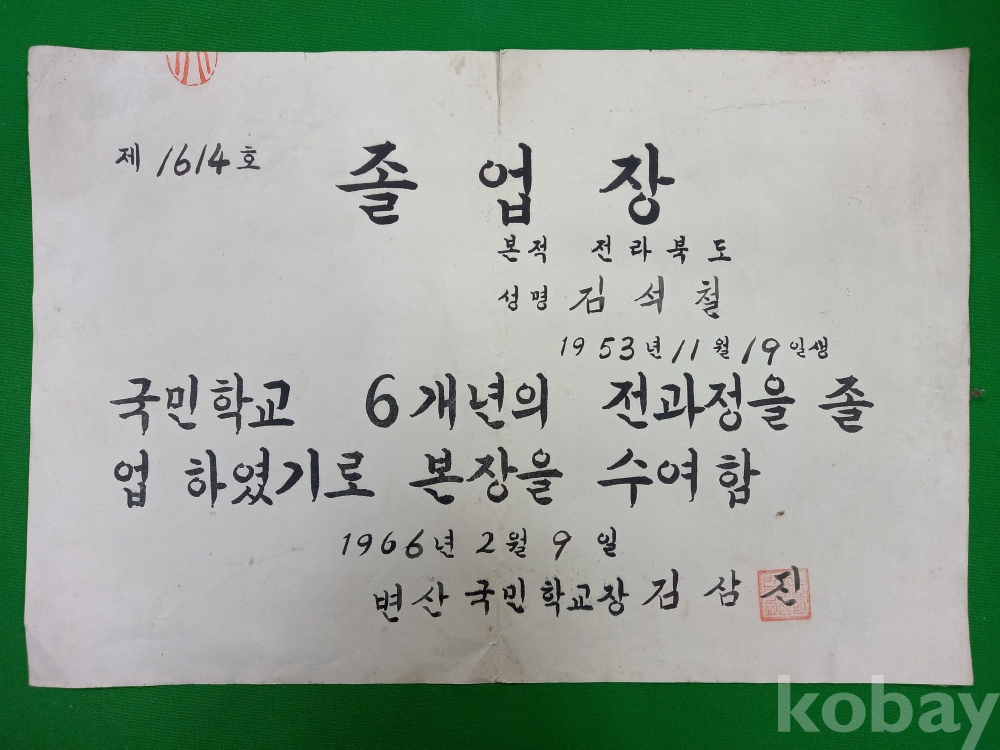 제 1614 호
졸 업 장
본적 전라북도
성명 김석철
1953년 11월 19일생
국민학교 6개년의 전과정을 졸
업 하였기로 본장을 수여함
1966년 2월 9일
변산국민학교장 김삼진
kobay